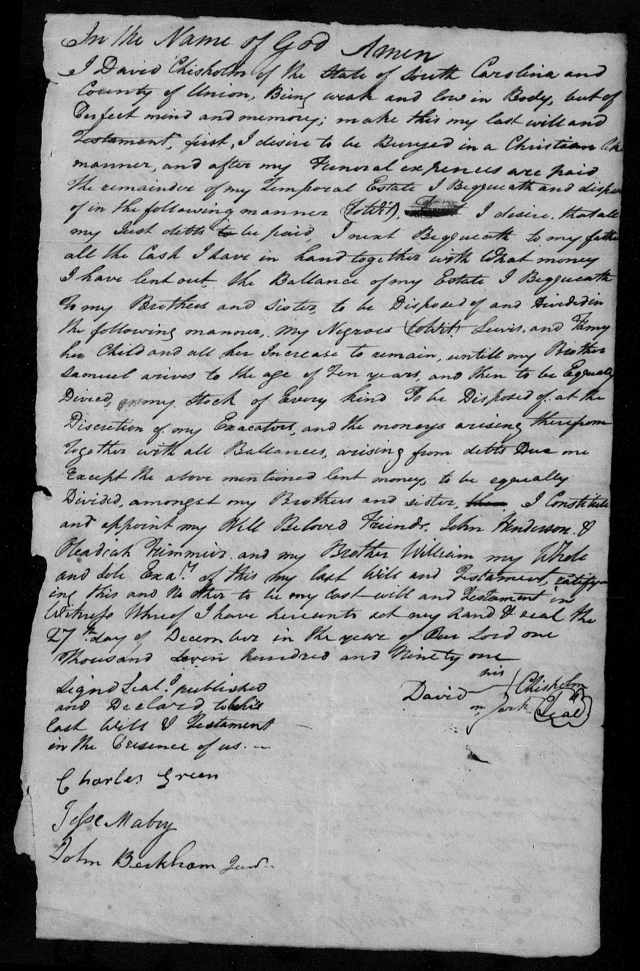 In the Name of God Amen
I David Chisholm of the State of South Carolina and
County of Union, Being weak and low in Body, but of
Perfect mind and memory; make this my last will and
Testament, first, I desire to be Buryed in a Christian like
manner, and after my Funeral expences are paid
the remainder of my Temporal Estate I Begqueath and dispose
of in the following manner (towit). I desire that all
my Just debts to be paid I next Begqueath to my father
all the Cash I have in hand together with what money
I have lent out the Ballance of my Estate I Begqueath
to my Brothers and Sister, to be Disposed of and Divided in
the following manner. My Negroes (towit) Lewis, and Famy
her Child and all her Increase to remain, untill my Brother
Samuel arives to the age of Ten years, and then to be Equally
Divied, my stock of Every kind To be Disposed of at the
Discretion of my Exacators, and the moneys arising therefrom
together with all Ballances, arising from debts Due me
Except the above mentioned lent money, to be equally
Divided, amongst my Brothers and sister, I Constitute
and appoint my Well Beloved Friends, John Henderson &
and my Brother William my Whole
and sole Exars. of this my last Will and Testament, ratify-
ing this and No other to be my last will and Testament in
Witness Whereof I have hereunto set my hand & seal the
27th. day of December in the year of Our Lord one
Thousand seven hundred and Ninety one
Signd Seald. published
and Declard, to be his
last Will & Testament
in the Presence of us.
his
David Chisholm
mark (Seal)
Charles Green
Jesse Mabry
John Beckham Junr.